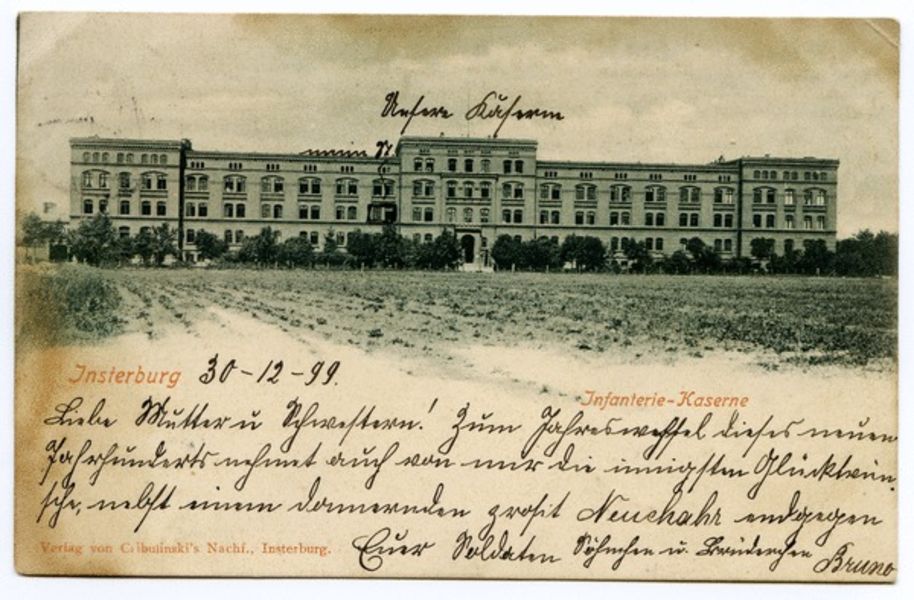 Unsere Käserne
mein St.
Insterburg 30-12-99.
Infanterie-Kaserne
Liebe Mutter u Schwestern! Zum Jahreswechsel dieses neuen
Jahrhunderts nehmet auch von mir die innigsten Glückwün
sche, nebst einem donnernden prosit Neuchahr endgegen
Euer Soldaten Söhnchen u. Brüderchen Bruno
Verlag von C. bulinski's Nachf., Insterburg.